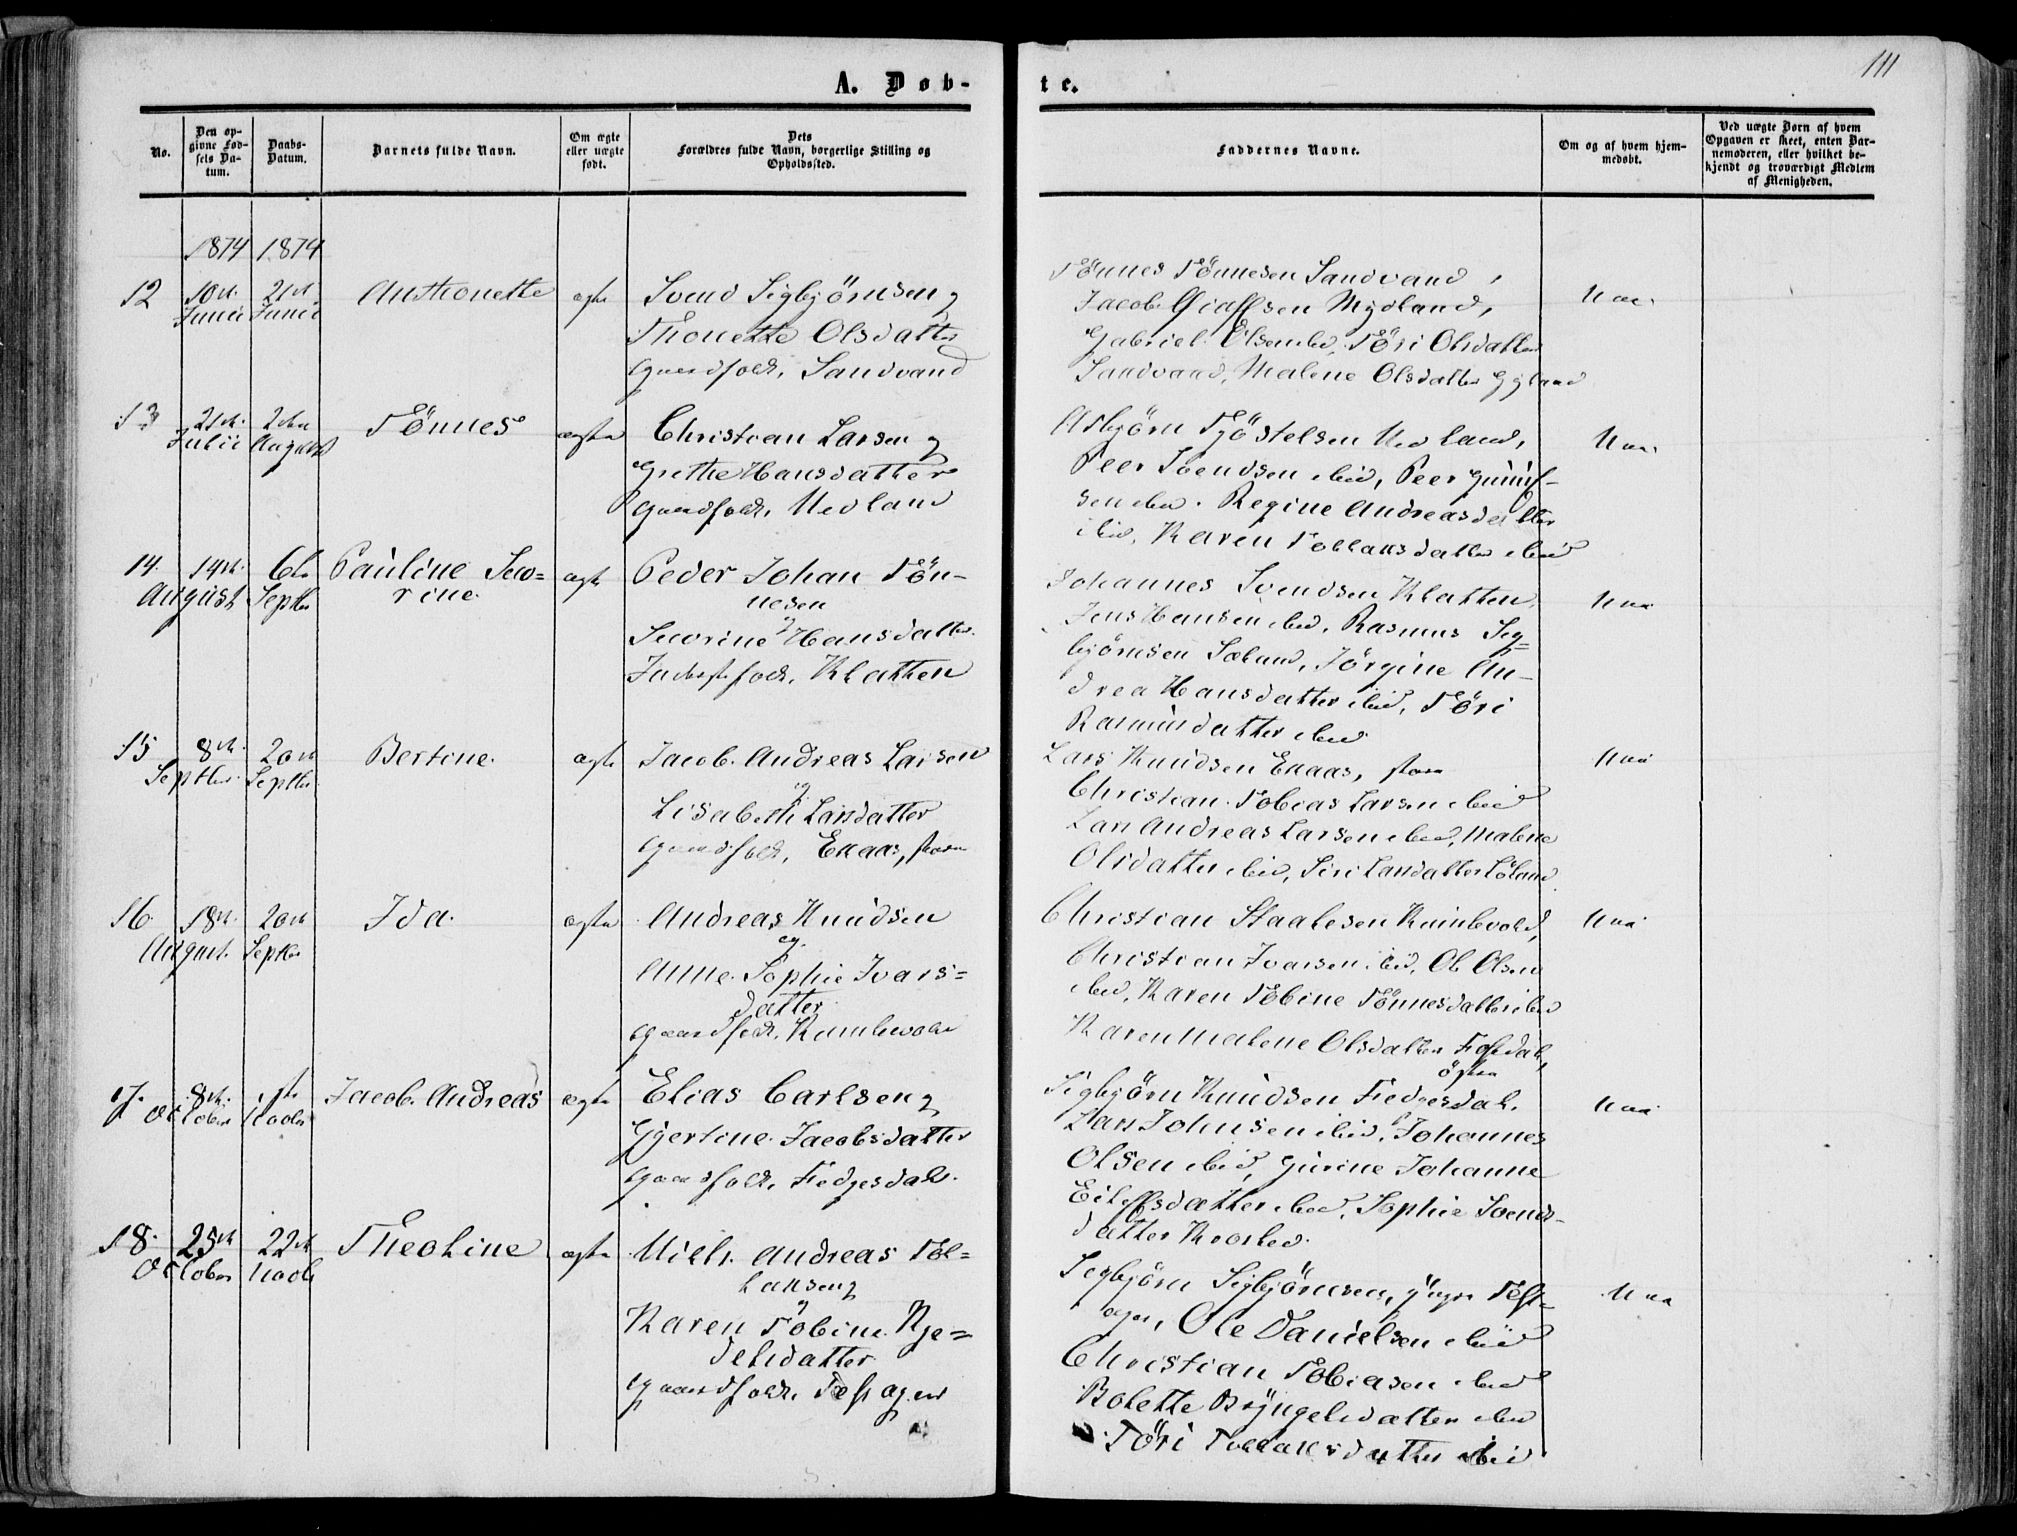 111
A. Døb-
te.
No.
Den op-
givne Fød-
sels Da-
tum.
Daabs-
Datum.
Barnets fulde Navn.
Om ægte
eller uægte
født.
Dets
Forældres fulde Navn, borgerlige Stilling og
Opholdssted.
Faddernes Navne.
Om og af hvem hjem-
medøbt.
Ved uægte Børn af hvem
Opgaven er skeet, enten Bar-
nemoderen, eller hvilket be-
kjendt og troværdigt Medlem
af Menigheden.
1874 1874
12
10de
Junii
21de
Junii
Anthonette
ægte
Svend Sigbjörnsen og
Thonette Olsdatter
Gaardfolk, Sandvand
Tönnes Tönnesen Sandvand,
Jacob Mydland,
Gabriel Olsen ibid, Töri Olsdatter
Sandvand, Malene Olsdatter Gyland
Naa.
13
21de
Julii
2den
August
Tönnes
ægte
Christian Larsen og
Grethe Hansdatter
Gaardfolk, Nedland
Asbjörn Tjöstelsen Nedland,
Peer Svendsen ibid, Peer
sen ibid. Regine Andreasdatter
ibid, Karen Tollaksdatter ibid
Naa.
14.
14de
August
6te
Septbr
Pauline Seve-
rine.
ægte
Peder Johan Tön-
nesen
og
Severine Hansdatter.
Inderstfolk, Klatten
Johannes Svendsen Klatten,
Jens Hansen ibid, Rasmus Sig-
björnsen Sæland, Jörgine An-
drea Hansdatter ibid, Töri
Rasmusdatter ibid.
Naa
15
8de
Septbr.
20de
Septbr.
Bertine.
ægte
Jacob Andreas Larsen
og
Lisabeth Larsdatter
Gaardfolk, Ekaas, store
Lars Knudsen Ekaas, store
Christian Tobias Larsen ibid
Lars Andreas Larsen ibid, Malene
Olsdatter ibid, Siri Larsdatter Löland.
Naa
16.
18de
August.
20de
Septbr
Ida.
ægte
Andreas Knudsen
og
Anne Sophie Ivars-
datter
Gaardfolk, Rumlevold
Christian Staalesen Rumlevold,
Christian Ivarsen ibid, Ole Olsen
ibid, Karen Tobine Tönnesdatter ibid
Karen Malene Olsdatter Fossdal,
östre
Naa
17.
8de
October
1ste
Novbr
Jacob Andreas
ægte
Elias Carlsen og
Gjertine Jacobsdatter
Gaardfolk, Fedgesdal.
Sigbjörn Knudsen Fedgesdal.
Lars Johnsen ibid, Johannes
Olsen ibid, Gurine Johanne
Eilefsdatter ibid, Sophie Svends-
datter
Naa
18.
25de
October
22de
Novb
Theoline
ægte
Niels Andreas Tol-
laksen og
Karen Tobine Kje-
delsdatter
Gaardfolk,
Sigbjörn Sigbjörnsen, yngre
Ole Danielsen ibid
Christian Tobiasen ibid
Bolette Bryngelsdatter ibid
Töri Tollaksdatter ibid
Naa